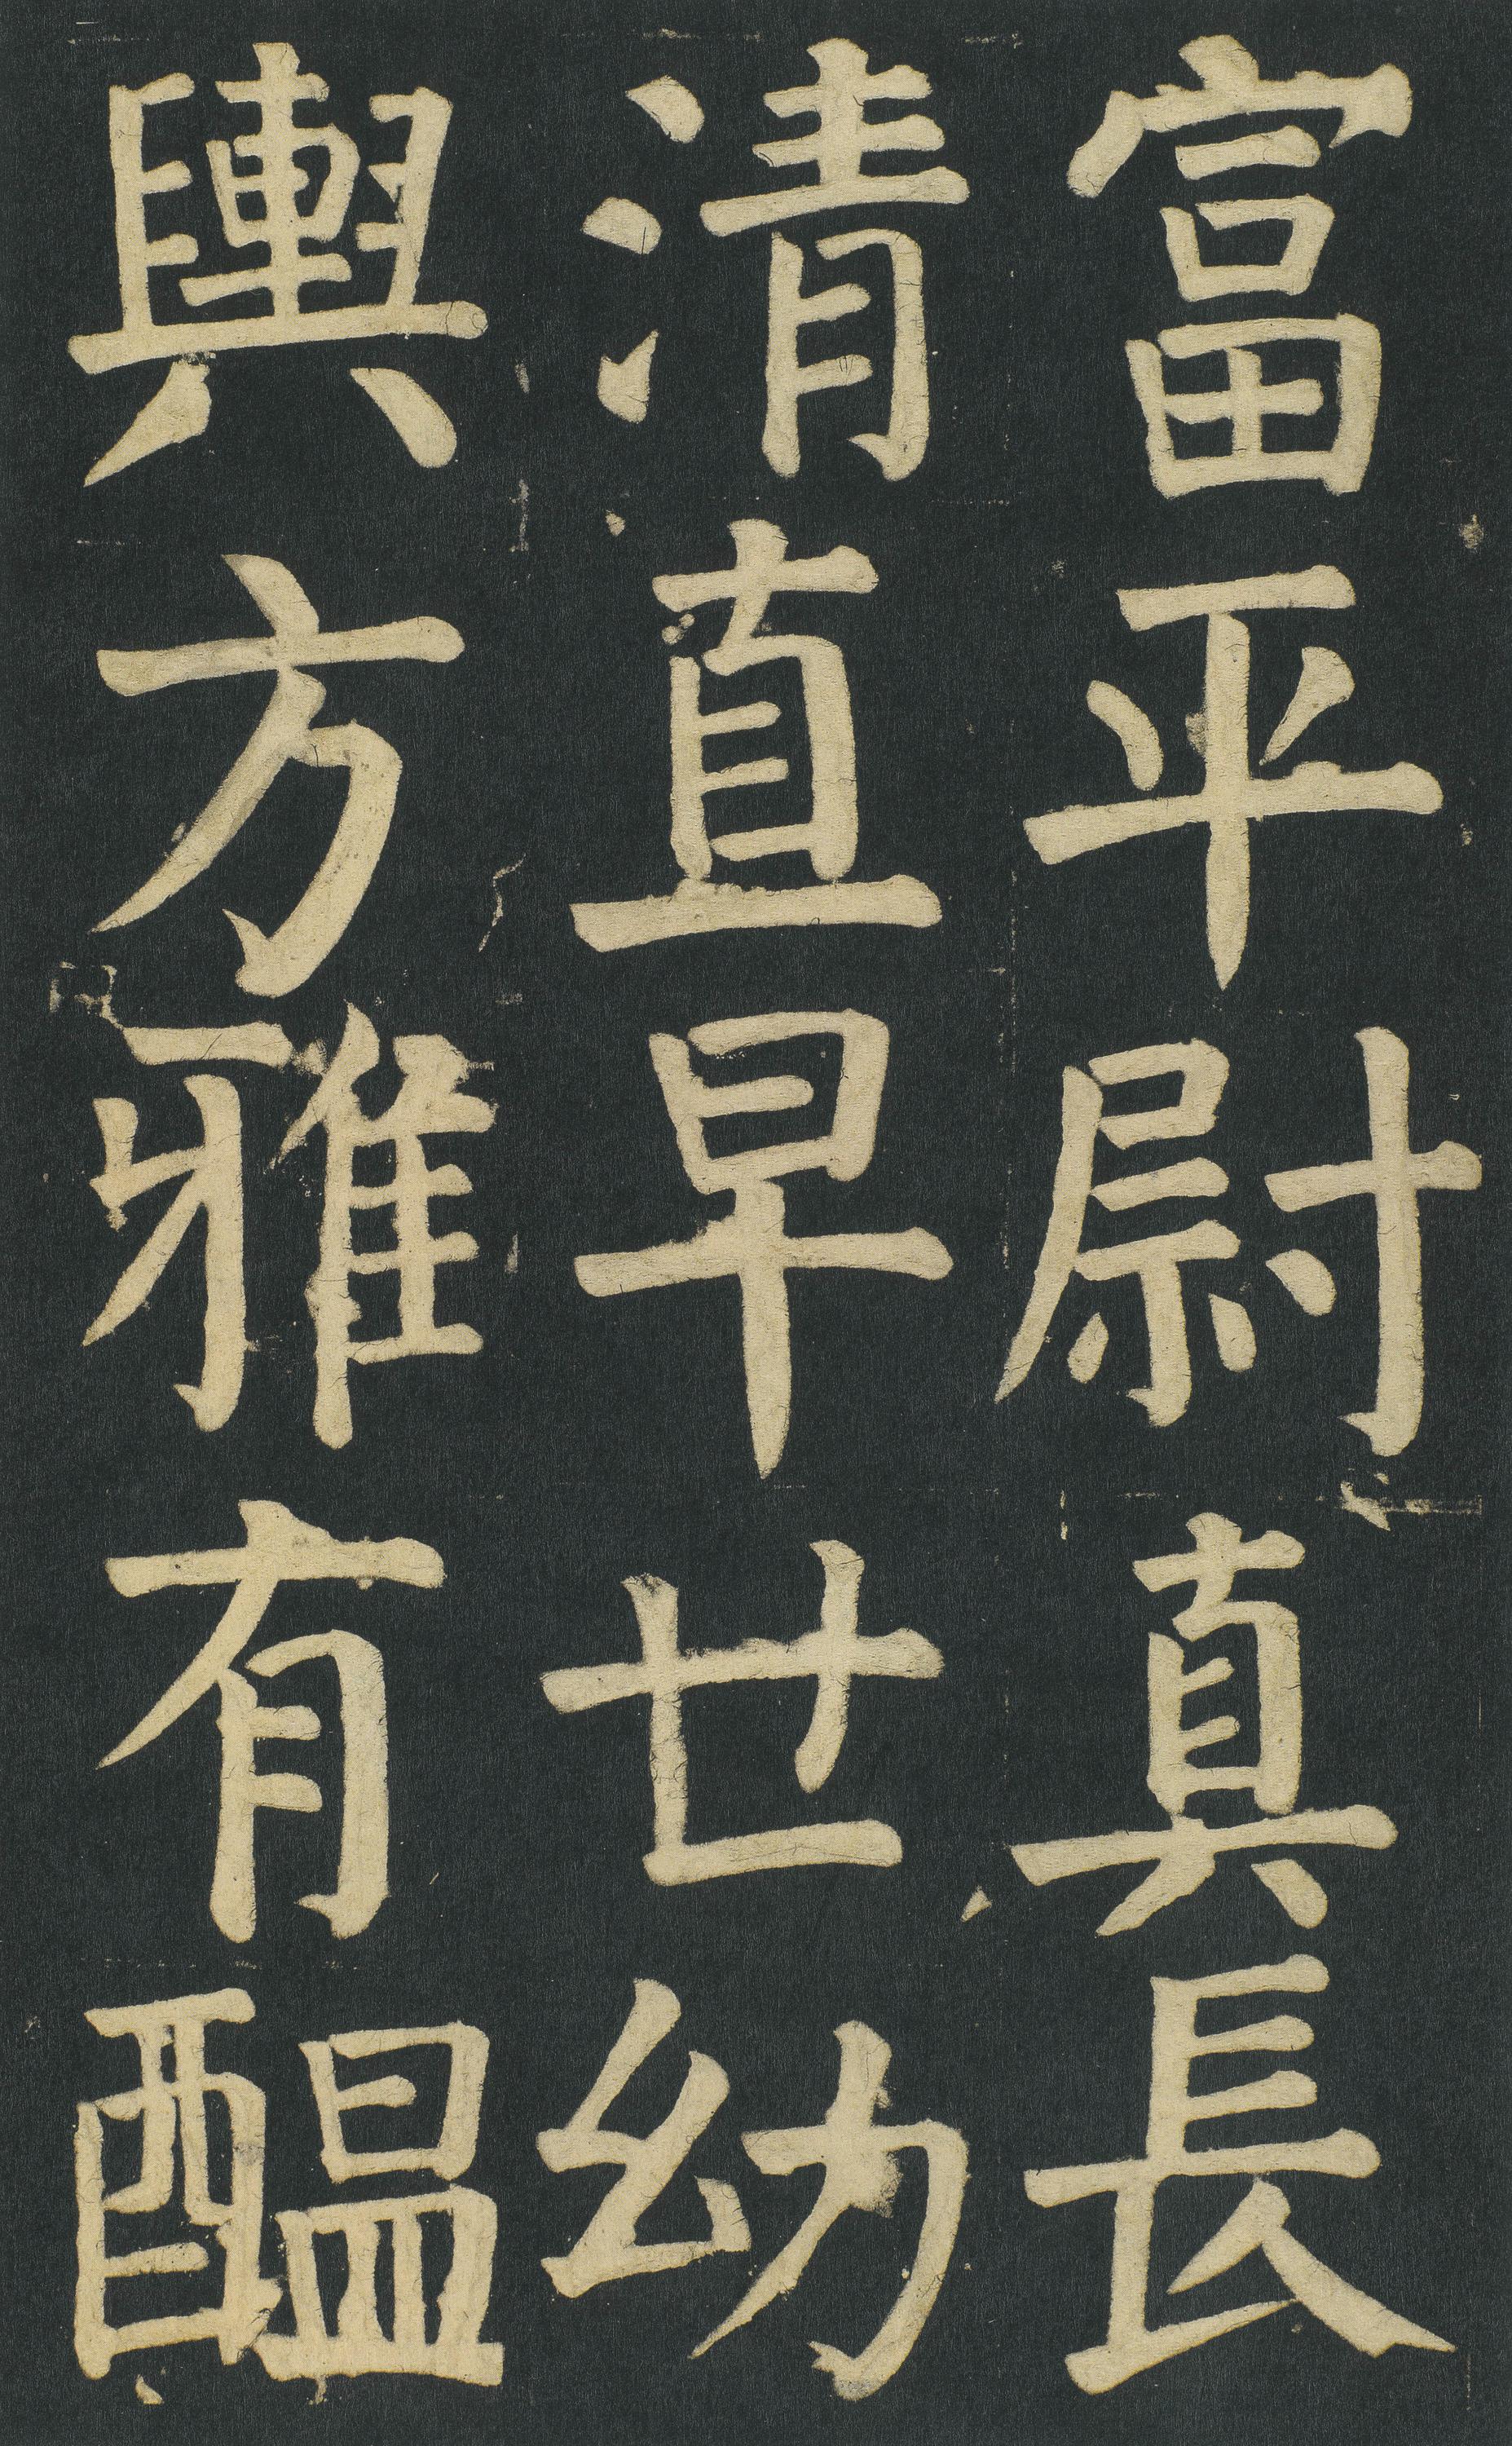 富平尉真長
清直早廿幼
輿方雅有醖